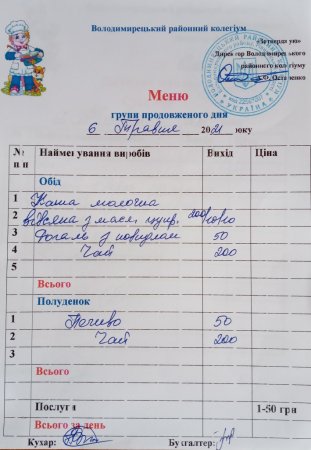 Володимирецький районний колегіум
«Затверджую»
Директор Володимирецького
районного колегіуму
Меню
групи продовженого дня
6 Травня 2021 року
№ пп Найменування виробів Вихід Ціна
Обід
1 Каша молочна
2 вівсяна з масл. цукр. 200/10/10
3 Рогаль з повидлом 50
4 Чай 200
5
Всього
Полуденок
1 Печиво 50
2 Чай 200
3
Всього
Послуги 1-50 грн
Всього за день
Кухар: Бухгалтер: